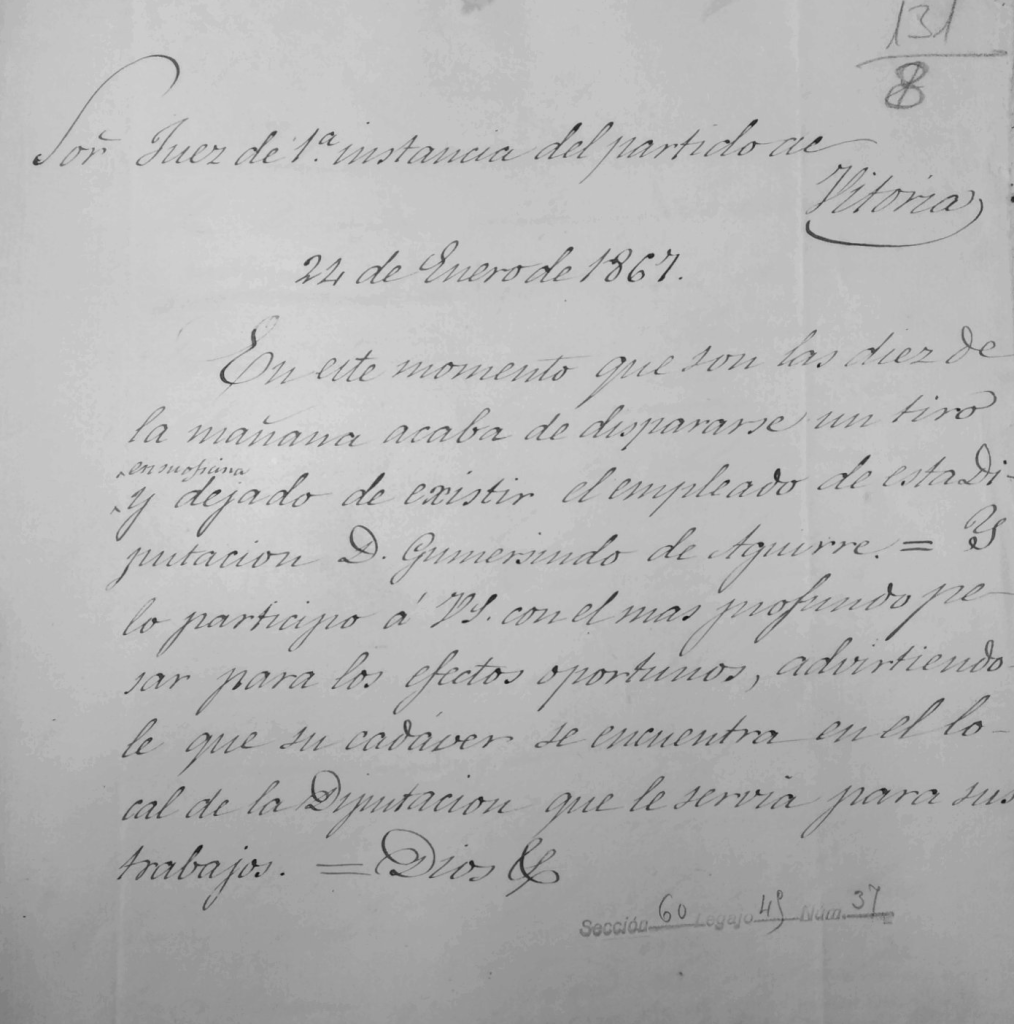 131
8
Sor Juez de 1.ª instancia del partido de
Vitoria
24 de Enero de 1867.
En este momento que son las diez de
la mañana acaba de dispararse un tiro
en su oficina
y dejado de existir el empleado de esta Di-
putacion D. Gumersindo de Aguirre. = Y
lo participo á VS. con el mas profundo pe-
sar para los efectos oportunos, advirtiendo-
le que su cadáver se encuentra en el lo-
cal de la Diputacion que le servia para sus
trabajos. = Dios &
Sección 60 Legajo 49 Núm. 37